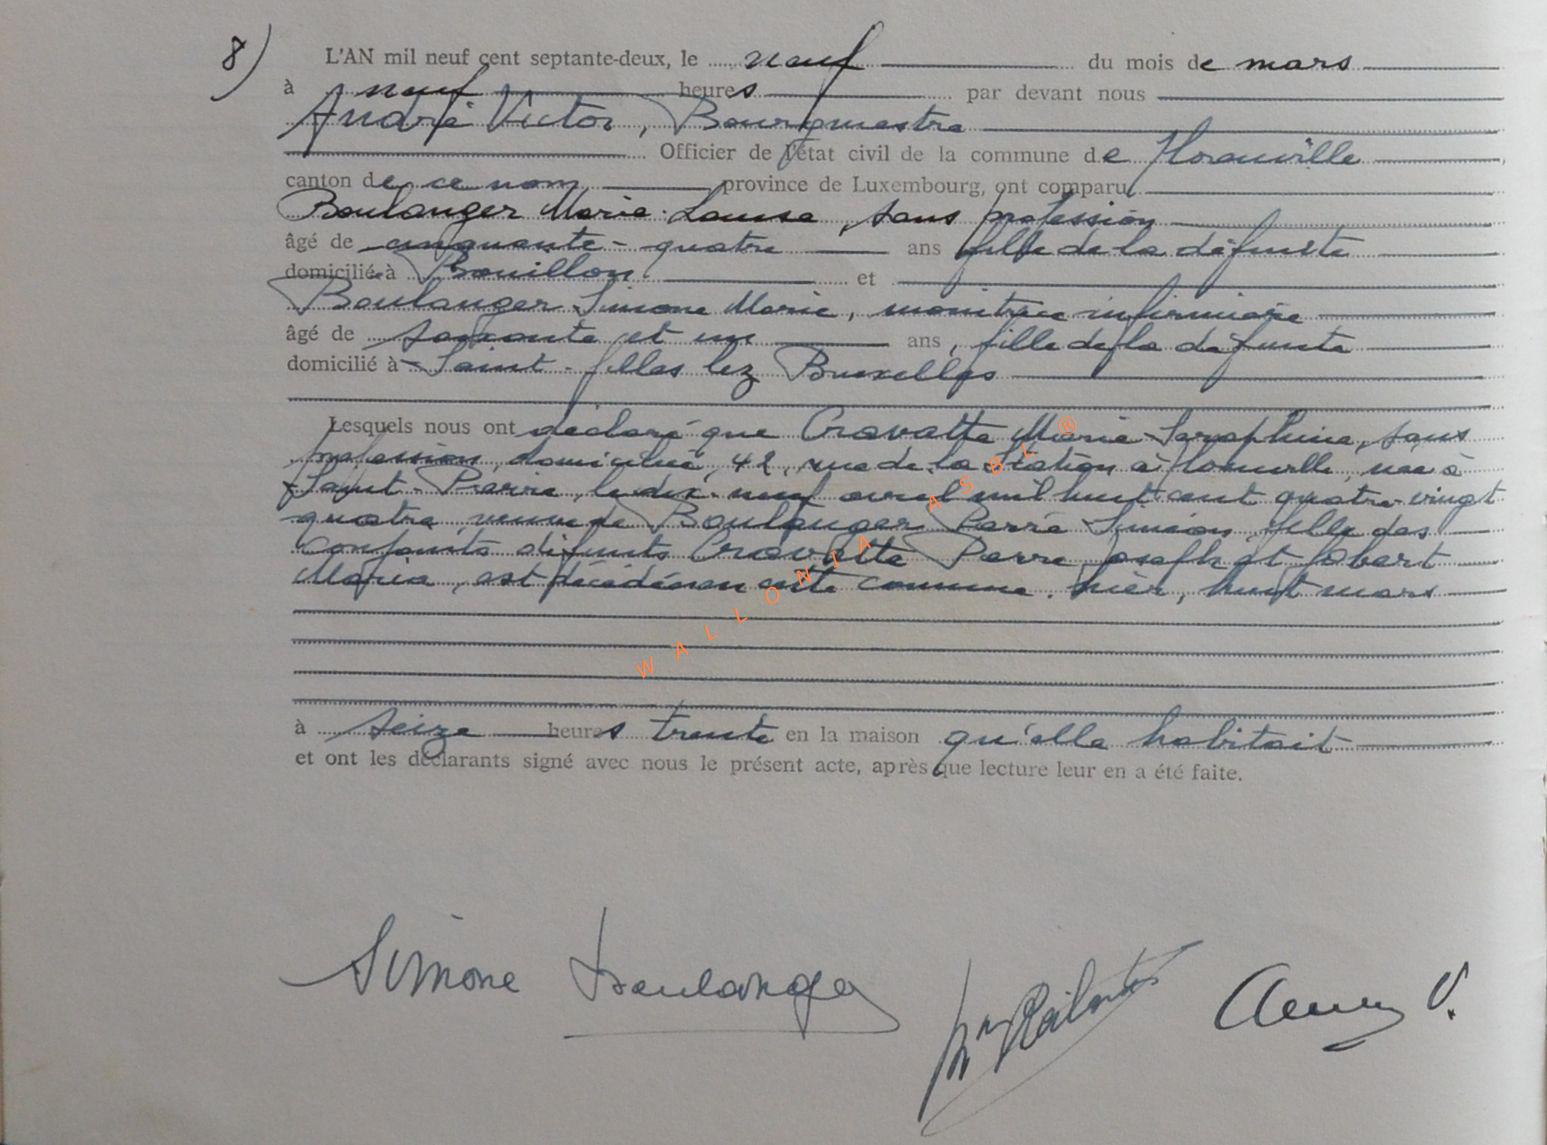 8) L'AN mil neuf cent septante-deux, le neuf du mois de mars
à neuf heures par devant nous
André Victor, Bourgmestre
Officier de l'état civil de la commune de
canton de ce nom, province de Luxembourg, ont comparu
Boulanger Marie-Louise, sans profession
âgé de cinquante-quatre ans fille de la défunte
domiciliée à Bouillon et
Boulanger Simone Marie, monitrice infirmière
âgé de soixante et un ans, fille de la défunte
domicilié à Saint-Gilles lez Bruxelles
Lesquels nous ont déclaré que Cravatte Marie-Séraphine, sans
profession, domiciliée, 42, rue de la Station à, née à
Saint-Pierre, le dix-neuf avril mil huit cent quatre-vingt
quatre veuve de Boulanger Pierre Siméon, fille des
conjoints défunts Cravatte Pierre Joseph et Jobert
Maria, est décédée en cette commune. hier, huit mars
WALLONIA ASBL ®
à seize heures trente en la maison qu'elle habitait
et ont les déclarants signé avec nous le présent acte, après que lecture leur en a été faite.
Simone Boulanger